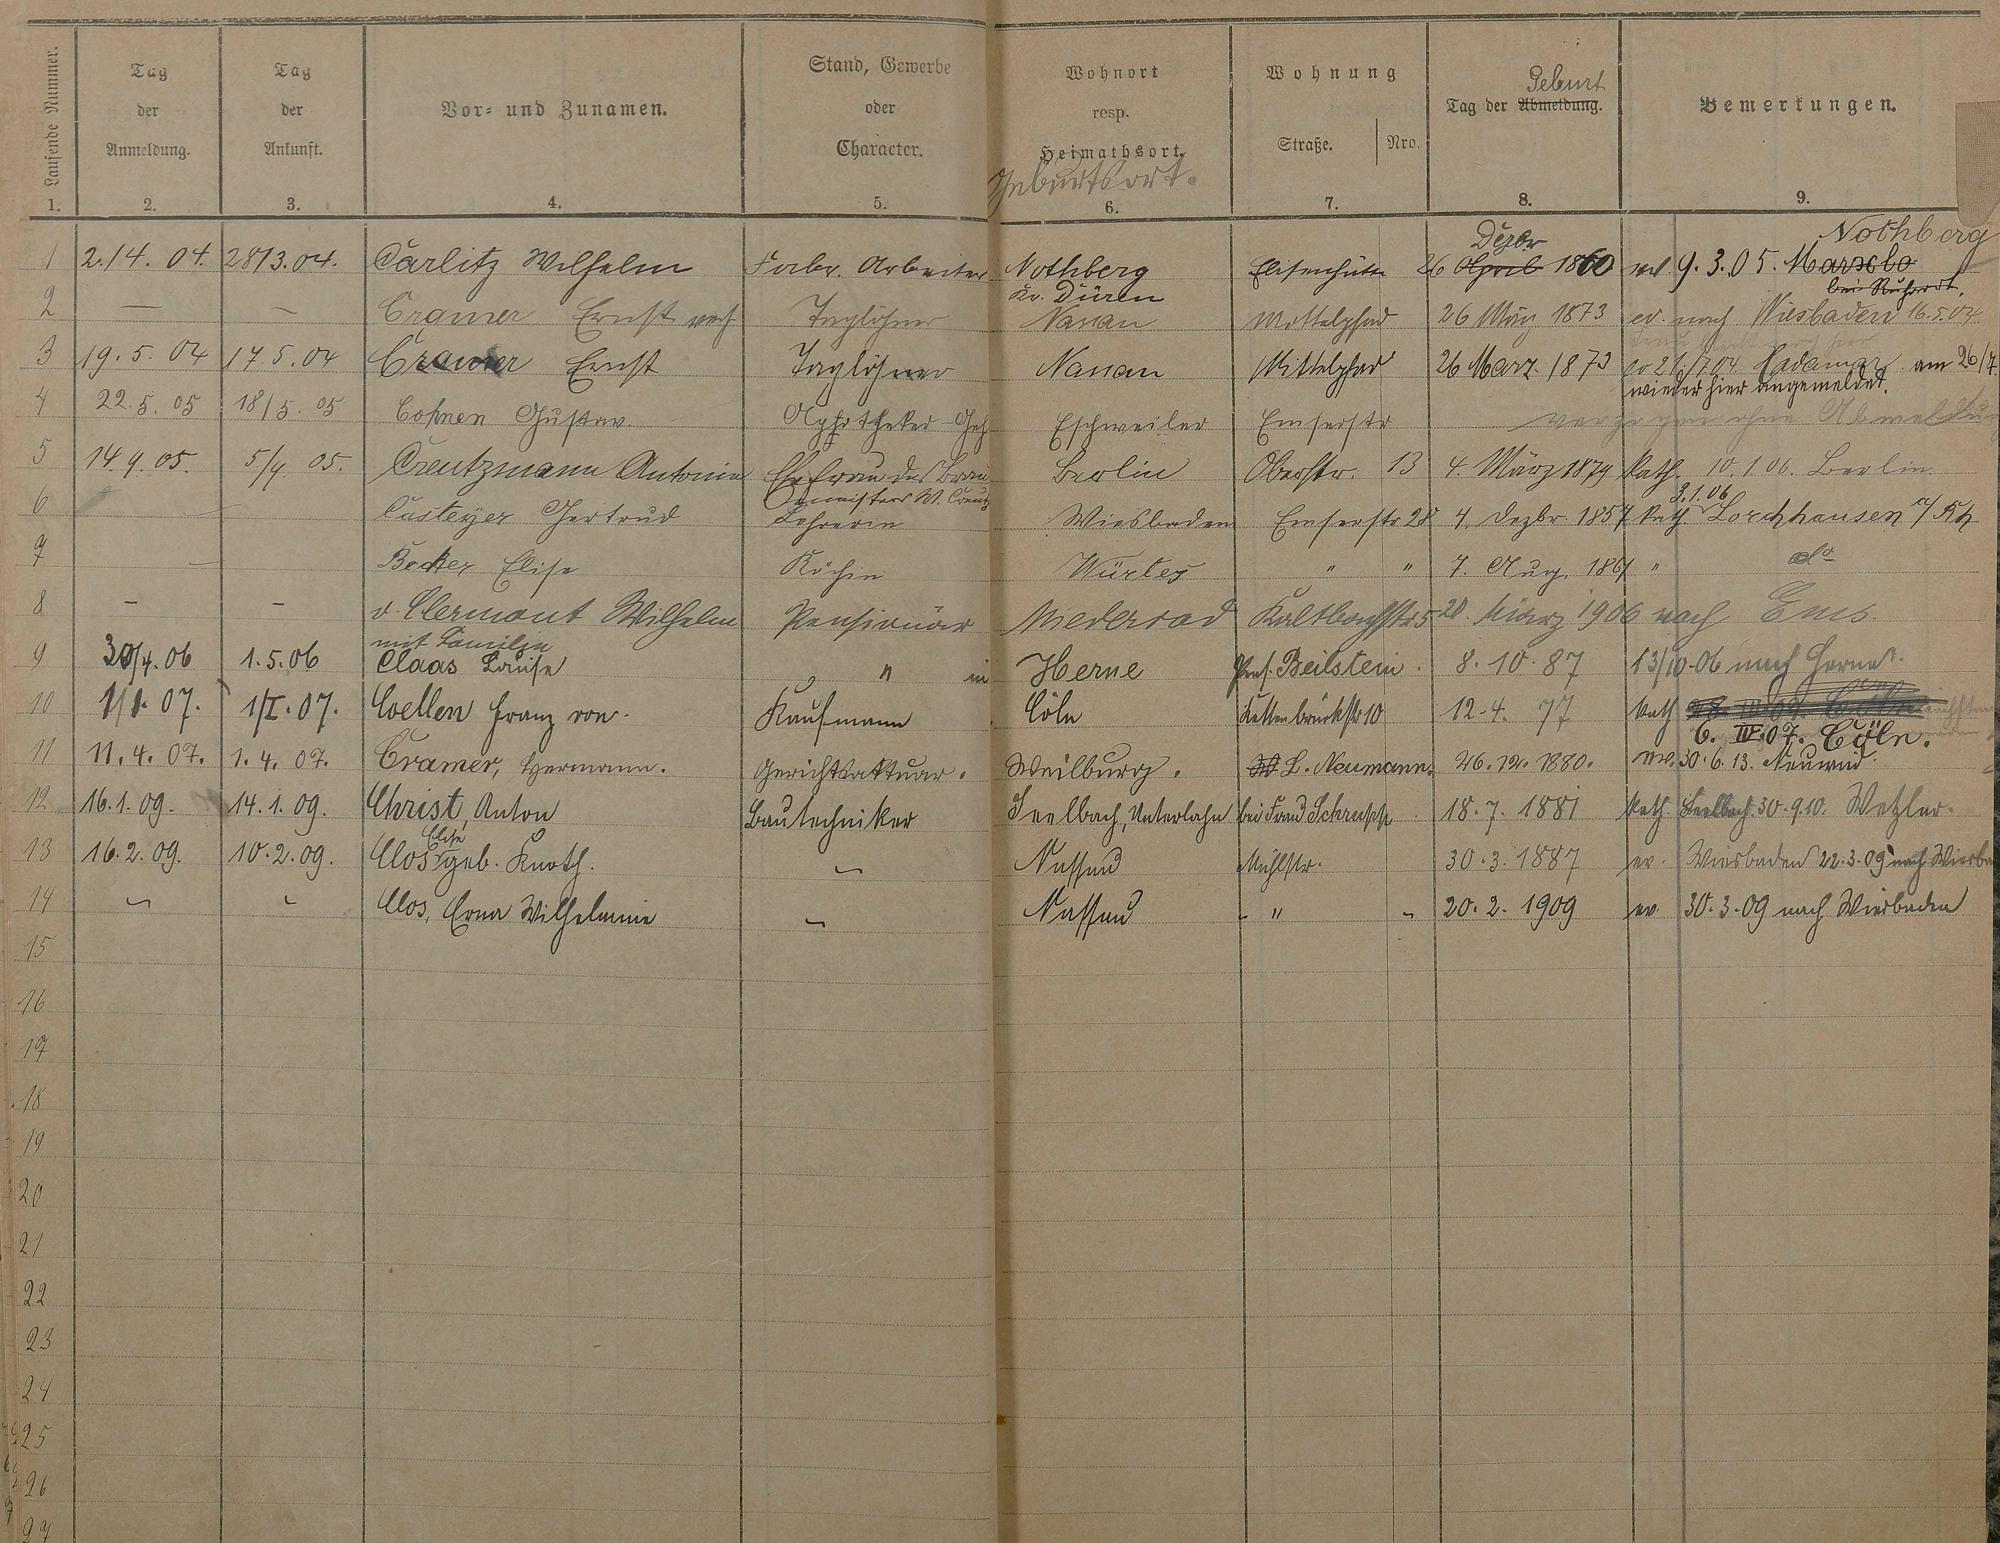 Laufende Nummer. Tag der Anmeldung. Tag der Ankunft. Vor- und Zunamen. Stand, Gewerbe oder Character. Wohnort resp. Heimathsort. Geburtsort. Wohnung Straße. Nro. Tag der Abmeldung. Geburt Bemerkungen.
1. 2. 3. 4. 5. 6. 7. 8. 9.
Dezbr Nothberg
1 2./4. 04. 28/3. 04. Carlitz Wilhelm Fabr. Arbeiter Nothberg Elisenhütte 26 April 1860 9. 3. 05. Marxloh
Kr. Düren bei Ruhrort.
2 — — Cramer Ernst Taglöhner Nassau Mittelpfad 26 März 1873 ev. nach Wiesbaden 16.5.04
3 19. 5. 04 17. 5. 04 Cramer Ernst Taglöhner Nassau Mittelpfad 26 März 1873 ev 21/7 04 Hadamar am 26/7.
wieder hier angemeldet.
4 22. 5. 05 18/5. 05 Cohnen Gustav. Apotheker-Geh. Eschweiler Emserstr verzogen ohne Abmeldung
5 14. 9. 05. 5/9. 05. Creutzmann Antonie Ehefrau des Brau- Berlin Oberstr. 13 4. März 1879 kath. 10. 1. 06. Berlin.
meisters W. Creutz 3. 1. 06
6 — Casteyer Gertrud Lehrerin Wiesbaden Emserstr 28 4. Dezbr. 1857 kath. Lorchhausen a/Rh
7 — Becker Elise Köchin Würtes " " 7. Aug. 1861 " do
8 — — v. Clermont Wilhelm Pensionär Niederrad Kaltbachstr 5 20. März 1906 nach Ems.
mit Familie
9 30/4. 06 1. 5. 06 Claas Louise " in Herne Pens. Beilstein. 8. 10. 87 13/10. 06 nach Herne.
10 1/1. 07. 1/I. 07. Coellen Franz von. Kaufmann Cöln Kettenbrückstr 10 12. 4. 77 kath
6. IV. 07. Cöln.
11 11. 4. 07. 1. 4. 07. Cramer, Hermann. Gerichtsaktuar. Weilburg. L. Neumann. 26. 12. 1880. ev. 30. 6. 13. Neuwied.
12 16. 1. 09. 14. 1. 09. Christ, Anton Bautechniker Seelbach, Unterlahn bei Frau Schrupp 18. 7. 1881 kath. Seelbach. 30. 9. 10. Wetzlar.
Elise
13 16. 2. 09. 10. 2. 09. Clos geb. Knoth. — Nassau Mühlstr. 30. 3. 1887 ev. Wiesbaden 22. 3. 09 nach Wiesba
14 " " Clos, Erna Wilhelmine — Nassau " " " 20. 2. 1909 ev. 30. 3. 09 nach Wiesbaden
15
16
17
18
19
20
21
22
23
24
25
26
27